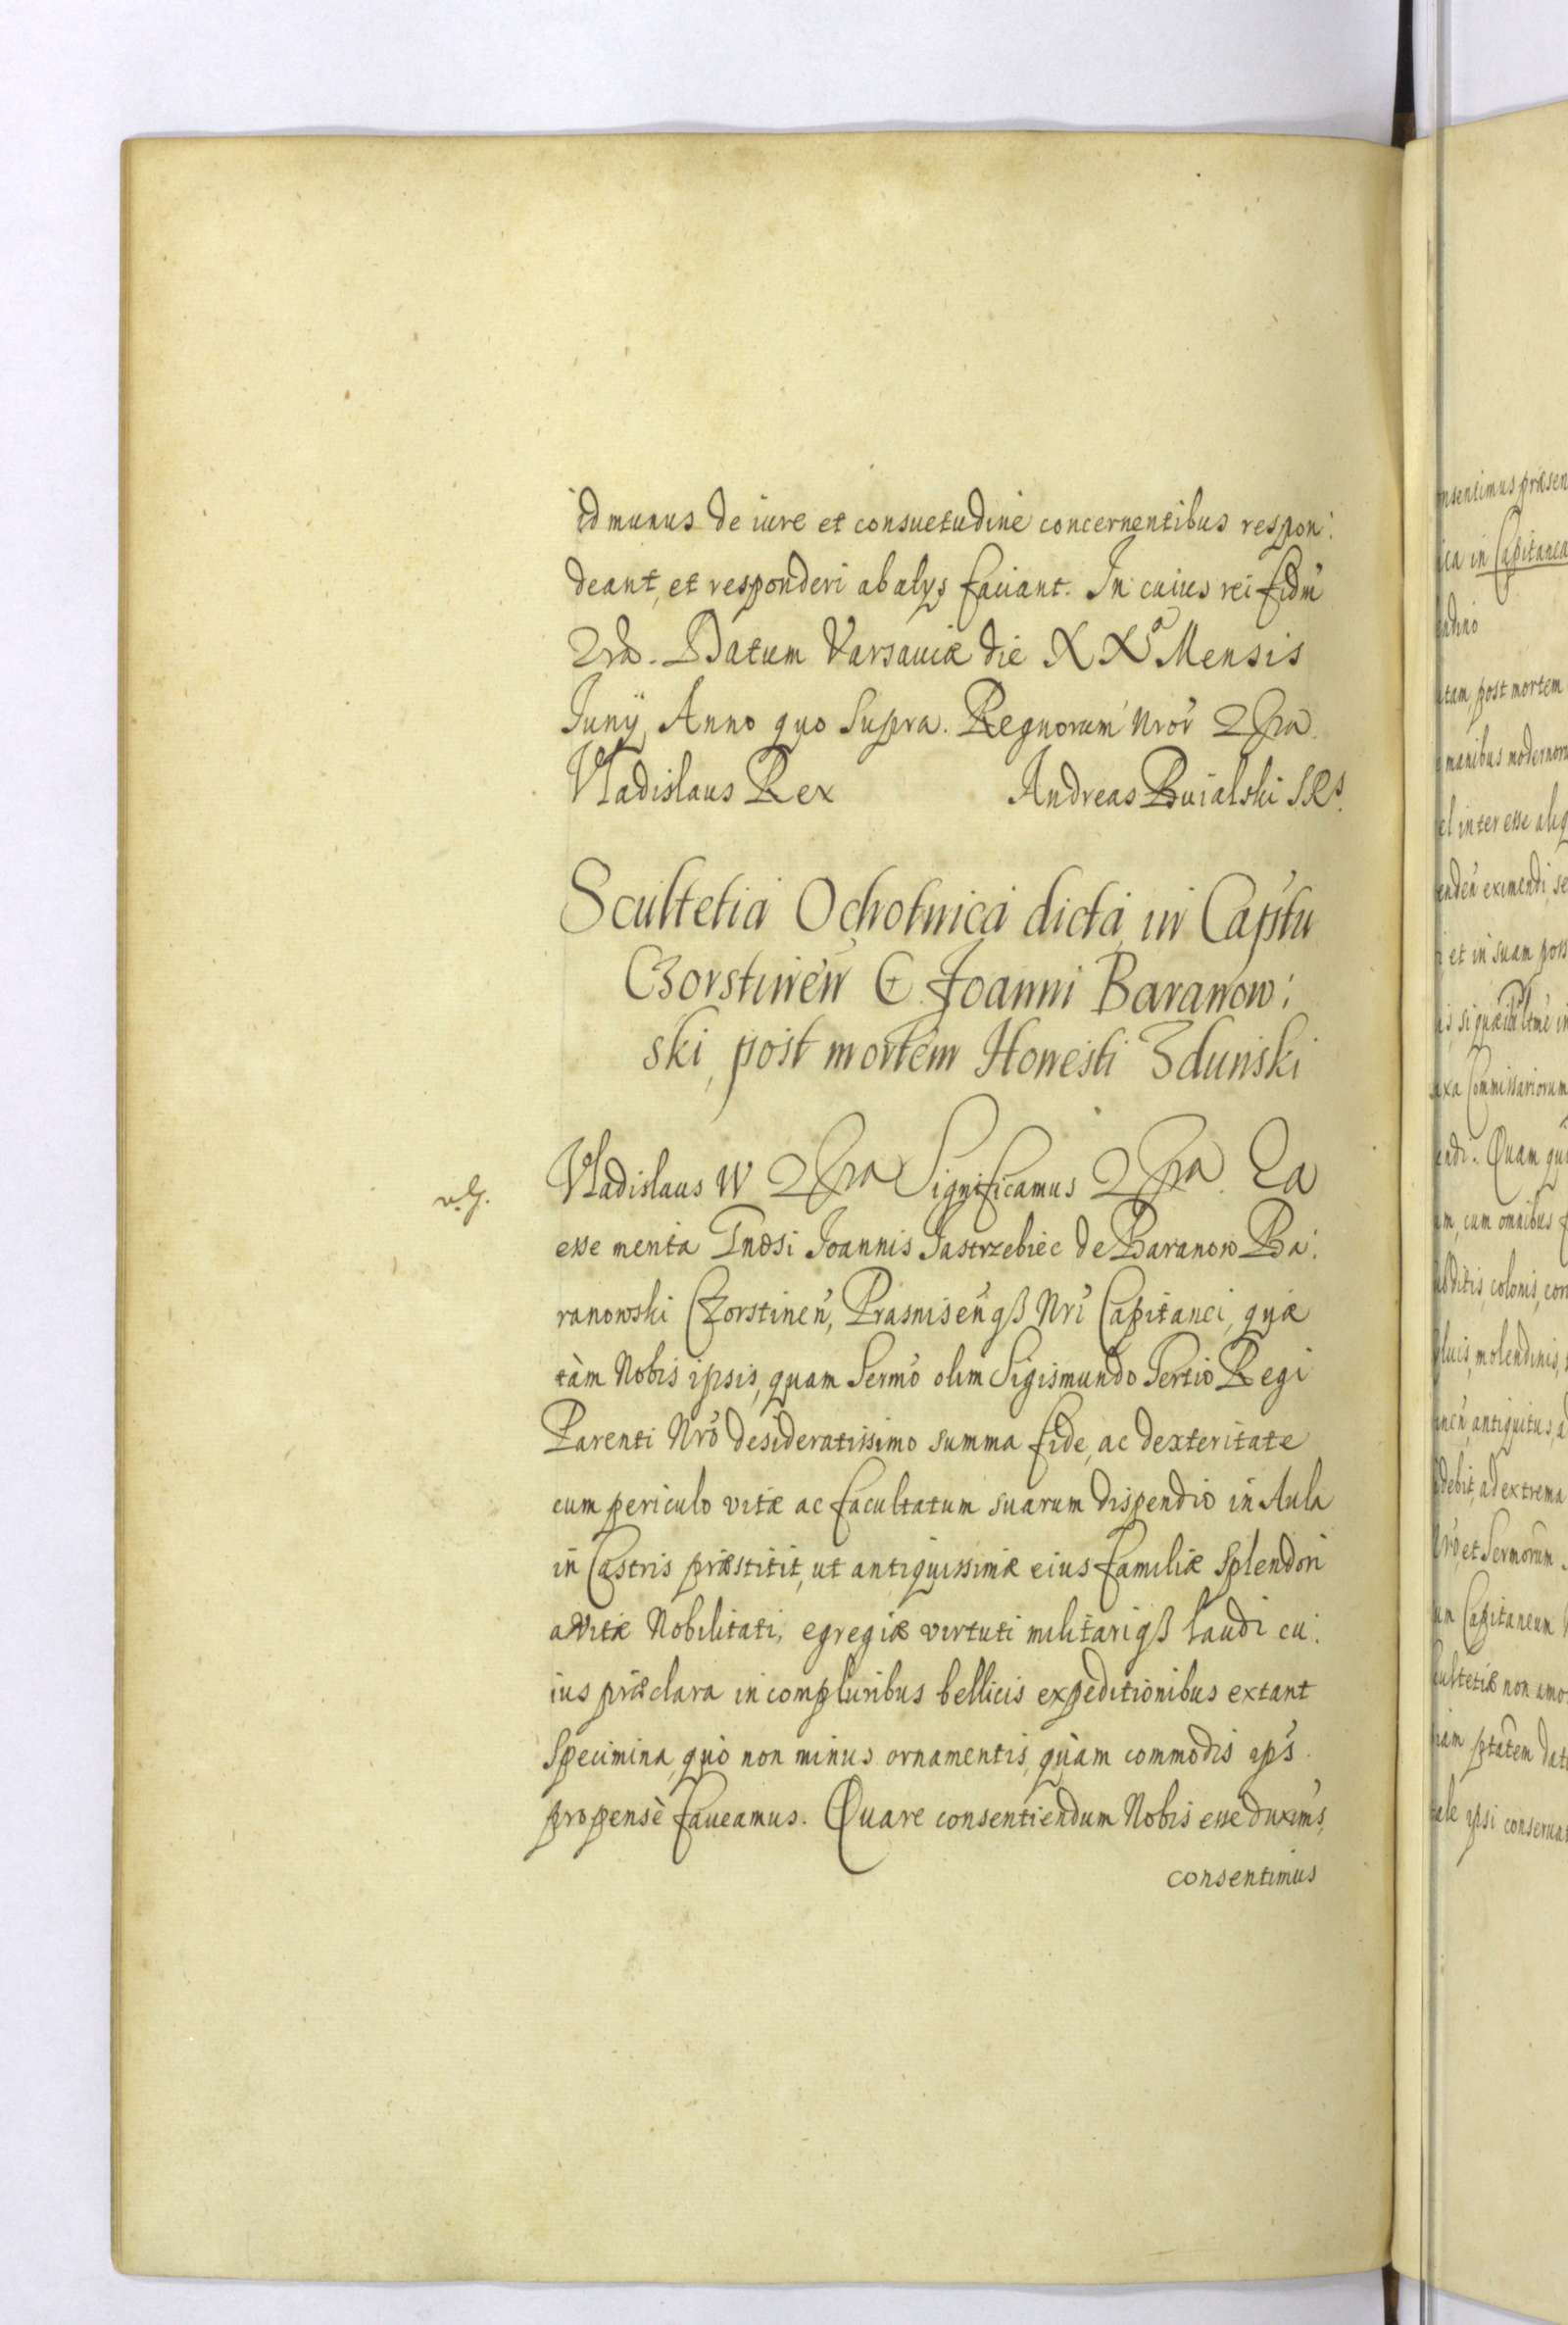 id munus de iure et consuetudine concernentibus respon:
deant, et responderi ab alys faciant. In cuius rei fidm
Datum Varsaviæ die XXa Mensis
Juny, Anno quo supra. Regnorum Nror
Vladislaus Rex Andreas Buialski SRS.
Scultetia Ochotnica dicta in Captu
Czorstinen G. Joanni Baranow:
ski, post mortem Honesti Zdunski
Vladislaus IV Significamus Ea
esse merita Gnosi Joannis Jastrzebiec de Baranow Ba:
ranowski Czorstinen, Prasnisenqß Nri Capitanei, quæ
tàm Nobis ipsis, quam Sermo olim Sigismundo Tertio Regi
Parenti Nro desideratissimo summa fide, ac dexteritate
cum periculo vitæ ac facultatum suarum dispendio in Aula
in Castris præstitit, ut antiquissimæ eius familiæ splendori
avitæ Nobilitati, egregiæ virtuti militariqß laudi cu:
ius præclara in compluribus bellicis expeditionibus extant
specimina, quò non minus ornamentis, quàm commodis ips
propensè faveamus. Quare consentiendum Nobis esse duxims,
consentimus
nsentimus præsen
ica in Capitanea
tam, post mortem
manibus modernor
el interesse aliq
enden eximendi, se
et in suam poss
axa Commissariorum
endi. Quam qui
m, cum omnibus
bditis, colonis, cor
luis, molendinis,
nen, antiquitus, a
debit, ad extrema
Nro, et Sermorum
um Capitaneum
cultetiæ non amo
iam ptatem dat
ale ipsi conservat